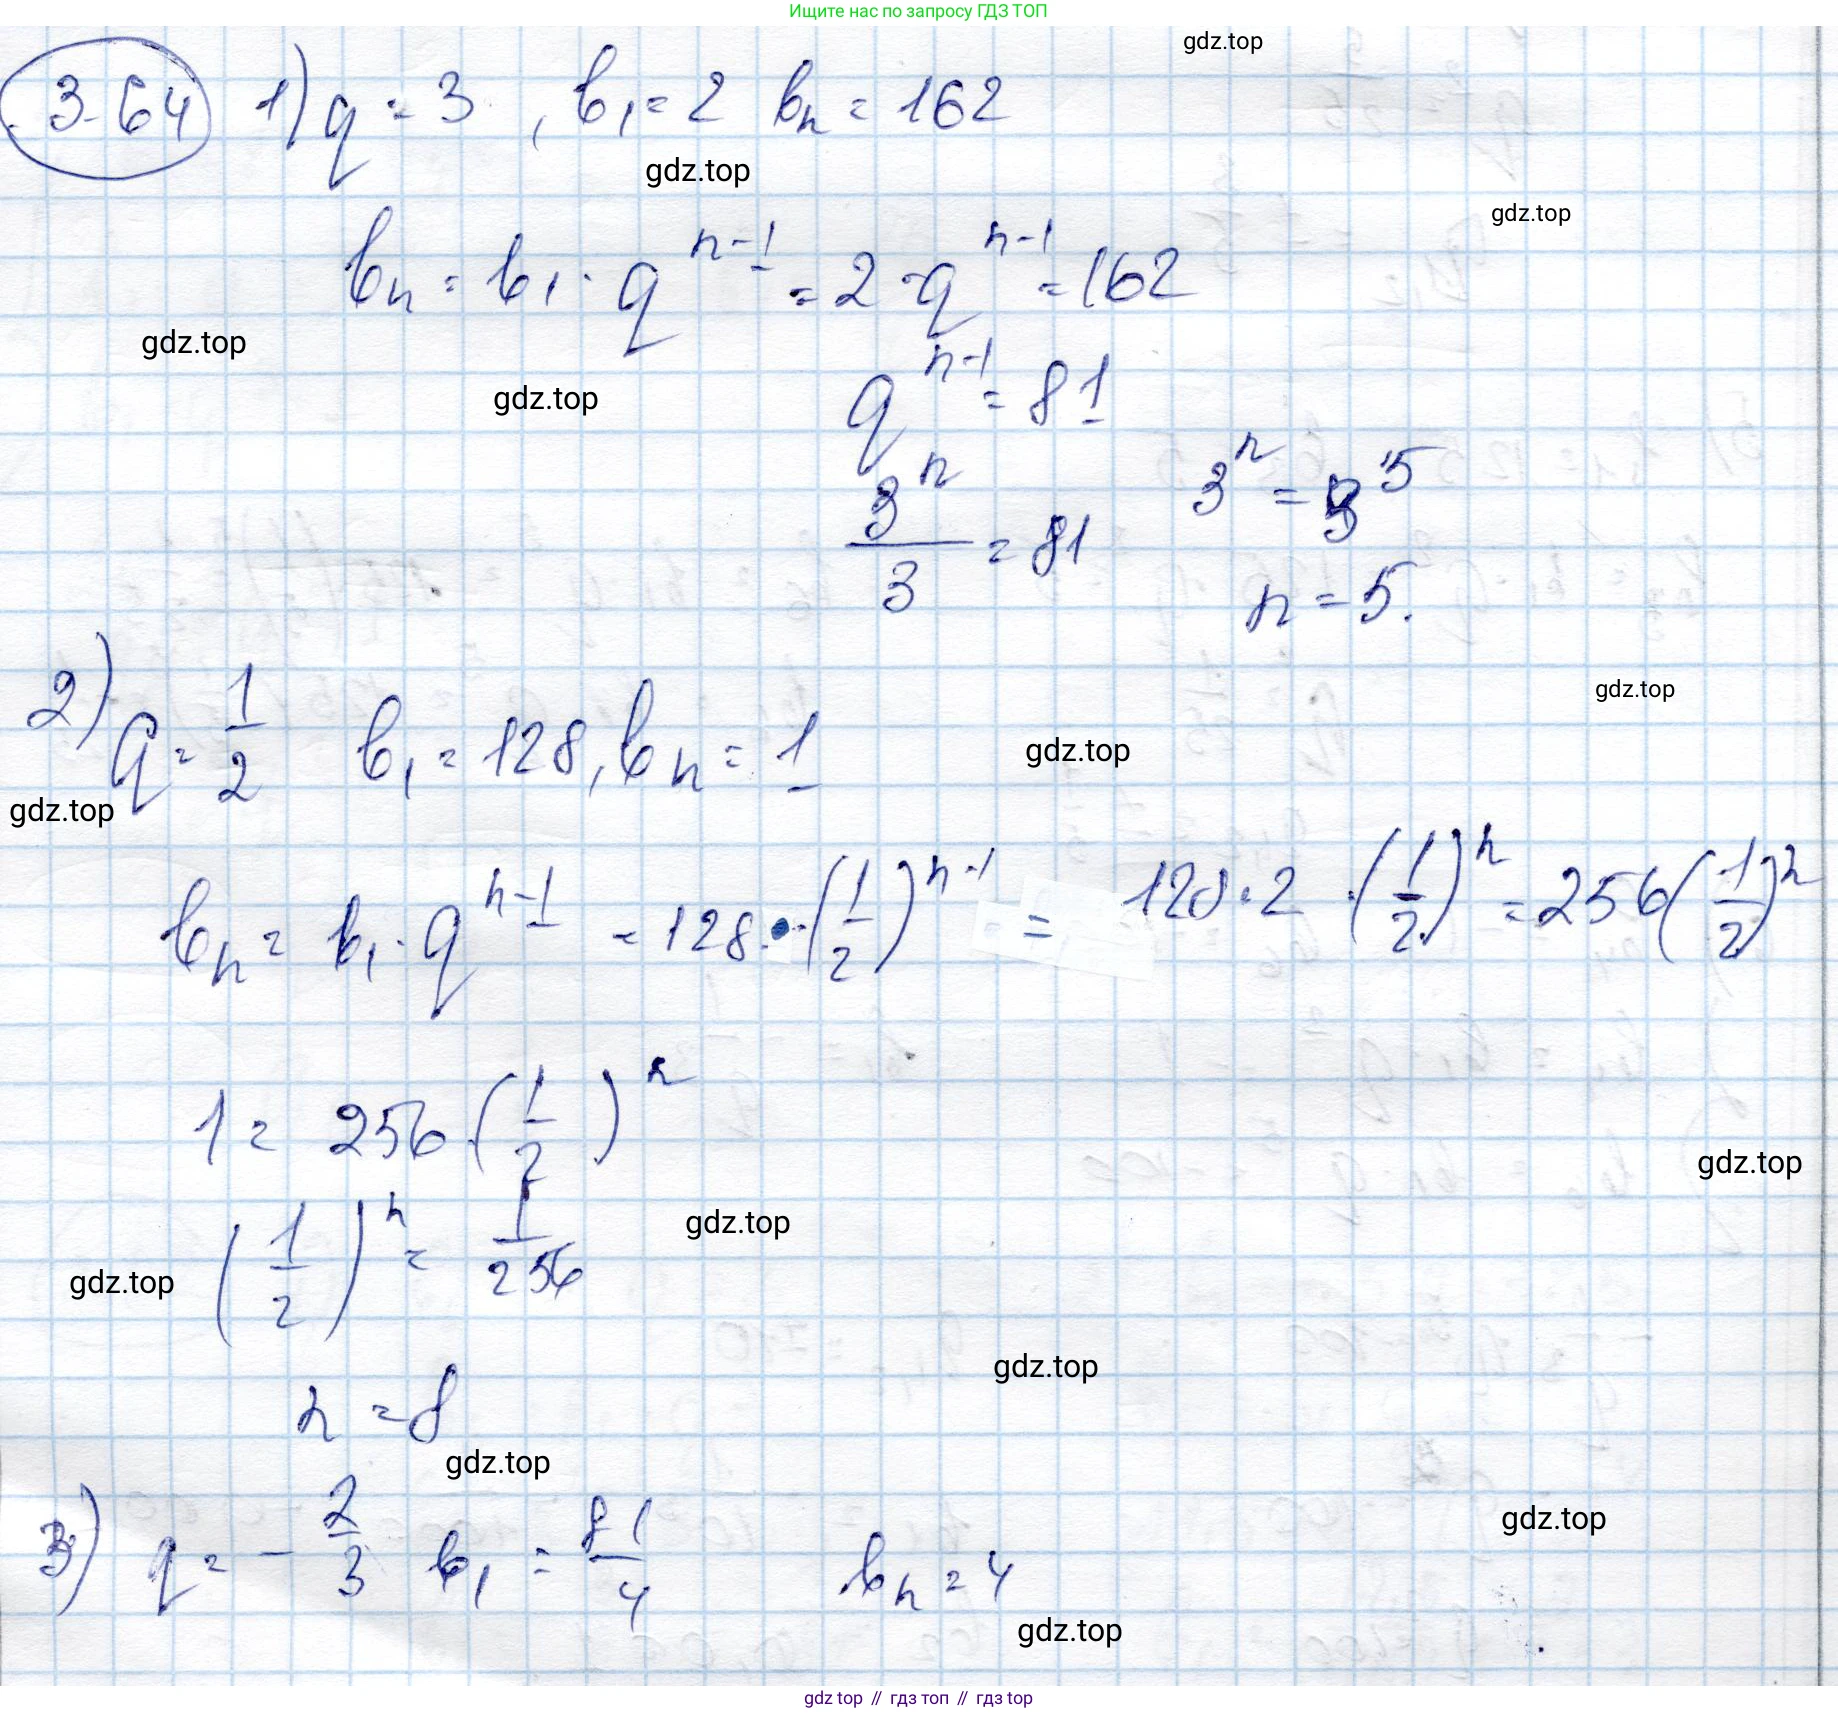 Ищите нас по запросу ГДЗ ТОП
gdz.top
3.64 1) q = 3, b₁ = 2 bₙ = 162
gdz.top
gdz.top
bₙ = b₁ · q^(n-1) = 2 · q^(n-1) = 162
gdz.top
gdz.top
q^(n-1) = 81
3^n/3 = 81 3^n = 3^5
n = 5.
gdz.top
2) q = 1/2 b₁ = 128, bₙ = 1
gdz.top
gdz.top
bₙ = b₁ · q^(n-1) = 128 · (1/2)^(n-1) = 128 · 2 · (1/2)^n = 256 (1/2)^n
1 = 256 · (1/2)^n
gdz.top
(1/2)^n = 1/256
gdz.top
gdz.top
gdz.top
n = 8
gdz.top
3) q = - 2/3 b₁ = 81/4 bₙ = 4
gdz.top
gdz.top
gdz top // гдз топ // гдз top